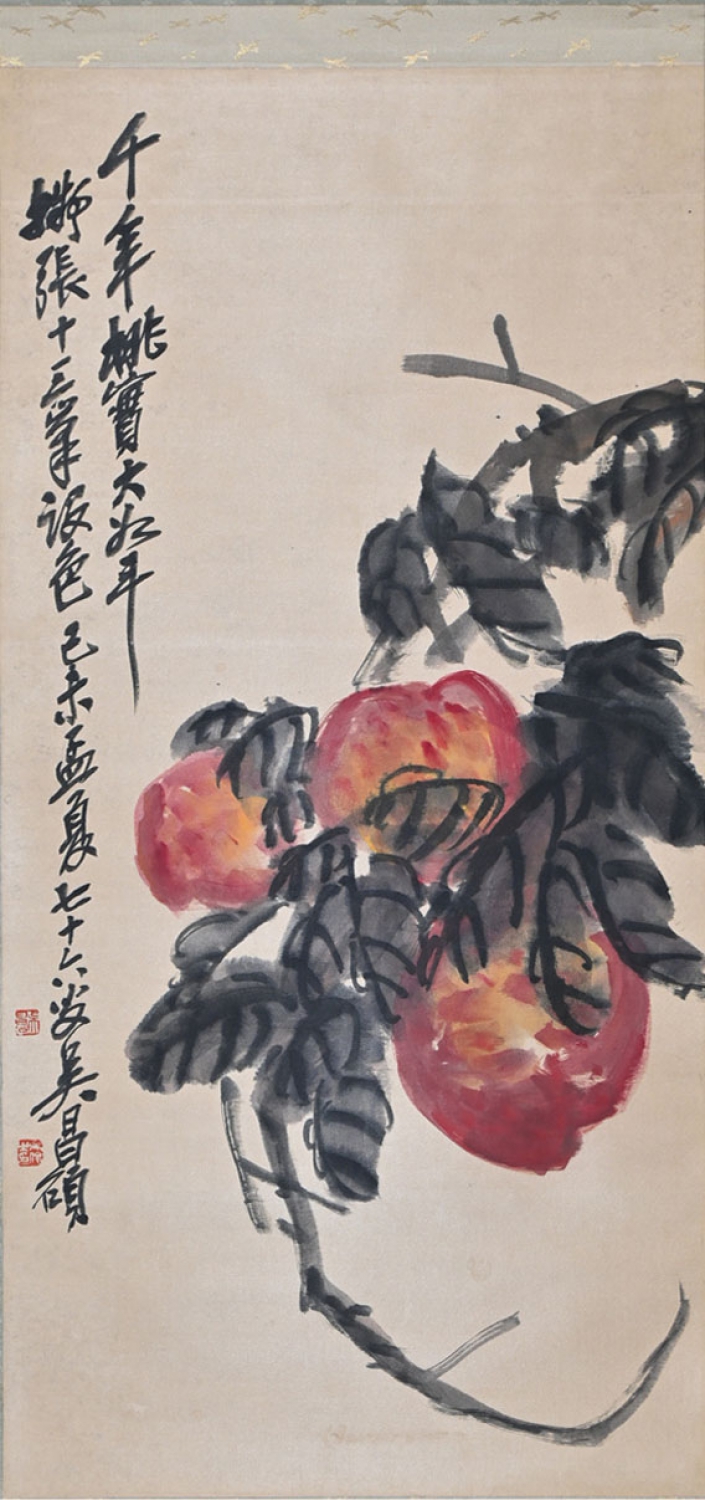 千年桃實大如斗
擬張十三筆設色己未孟夏七十六叟吳昌碩